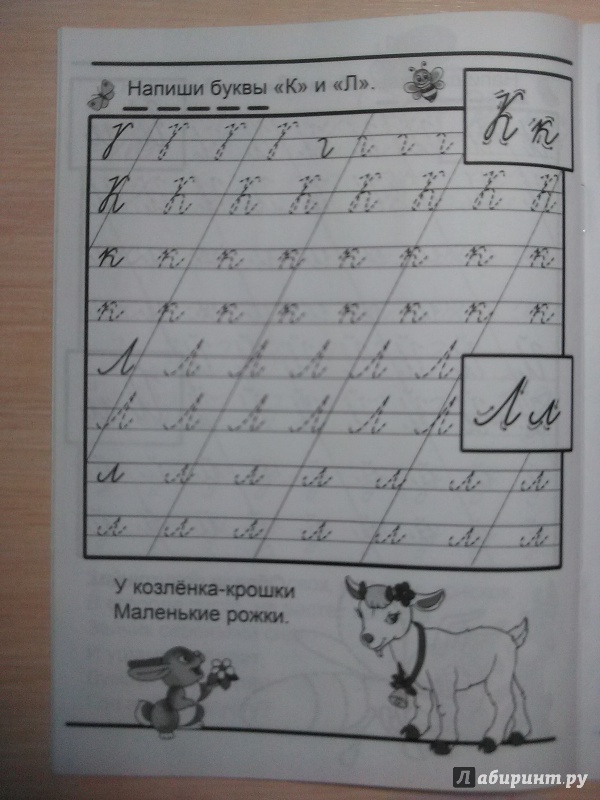 Напиши буквы «К» и «Л».
К к
К К К К К К К К
к к к к к к к к
к к к к к к к к
Л Л Л Л Л Л
Л л
Л Л Л Л Л Л
л л л л л л л
л л л л л л л
У козлёнка-крошки
Маленькие рожки.
Лабиринт.ру